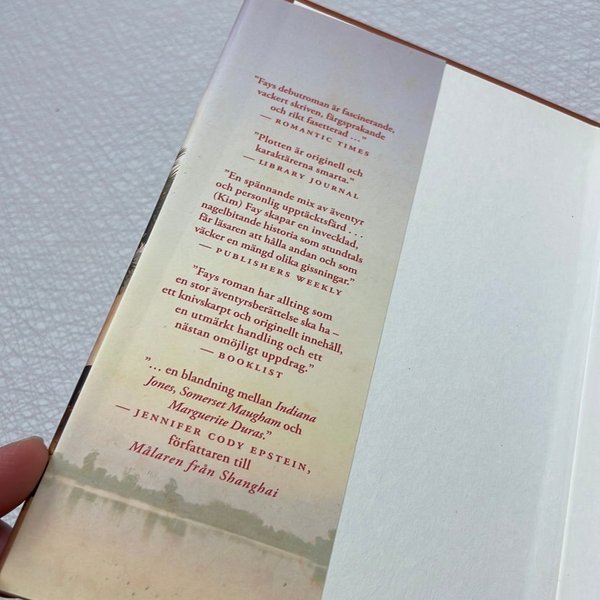 "Fays debutroman är fascinerande,
vackert skriven, färgsprakande
och rikt fasetterad ..."
— ROMANTIC TIMES
"Plotten är originell och
karaktärerna smarta."
— LIBRARY JOURNAL
"En spännande mix av äventyr
och personlig upptäcktsfärd . . .
(Kim) Fay skapar en invecklad,
nagelbitande historia som stundtals
får läsaren att hålla andan och som
väcker en mängd olika gissningar."
— PUBLISHERS WEEKLY
"Fays roman har allting som
en stor äventyrsberättelse ska ha –
ett knivskarpt och originellt innehåll,
en utmärkt handling och ett
nästan omöjligt uppdrag."
— BOOKLIST
"... en blandning mellan Indiana
Jones, Somerset Maugham och
Marguerite Duras."
— JENNIFER CODY EPSTEIN,
författaren till
Målaren från Shanghai